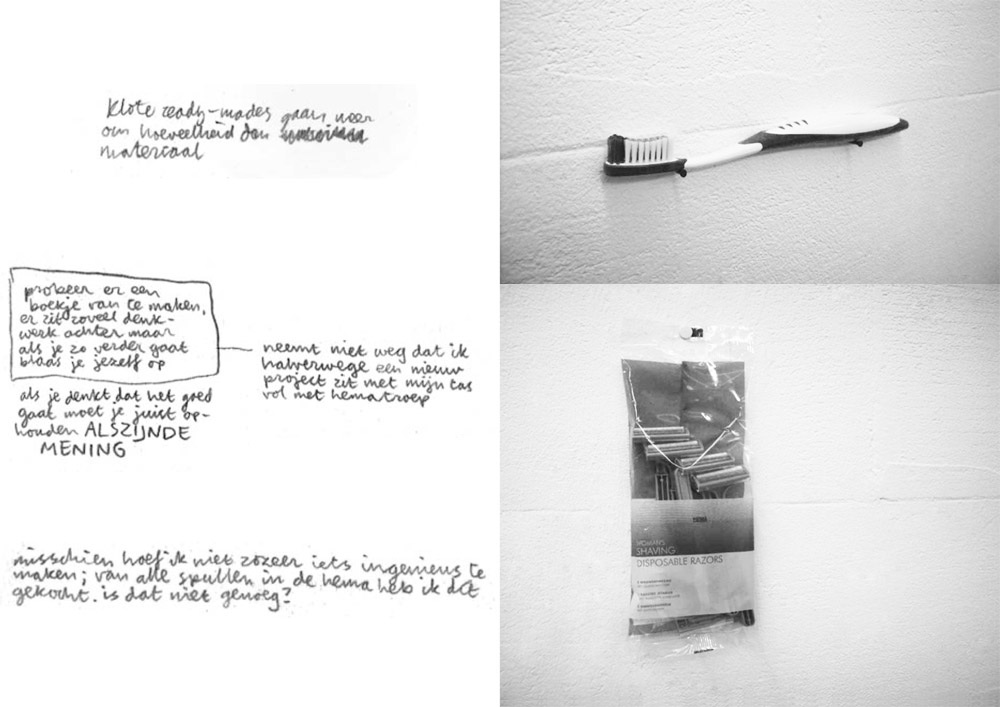 Klote ready-mades gaan weer
om hoeveelheid dan
materiaal
probeer er een
boekje van te maken,
er zit zoveel denk-
werk achter maar
als je zo verder gaat
blaas je jezelf op
neemt niet weg dat ik
halverwege een nieuw
project zit met mijn tas
vol met hematroep
als je denkt dat het goed
gaat moet je juist op-
houden ALSZIJNDE
MENING
misschien hoef ik niet zozeer iets ingenieus te
maken; van alle spullen in de hema heb ik dit
gekocht. is dat niet genoeg?
WOMEN'S
SHAVING
DISPOSABLE RAZORS